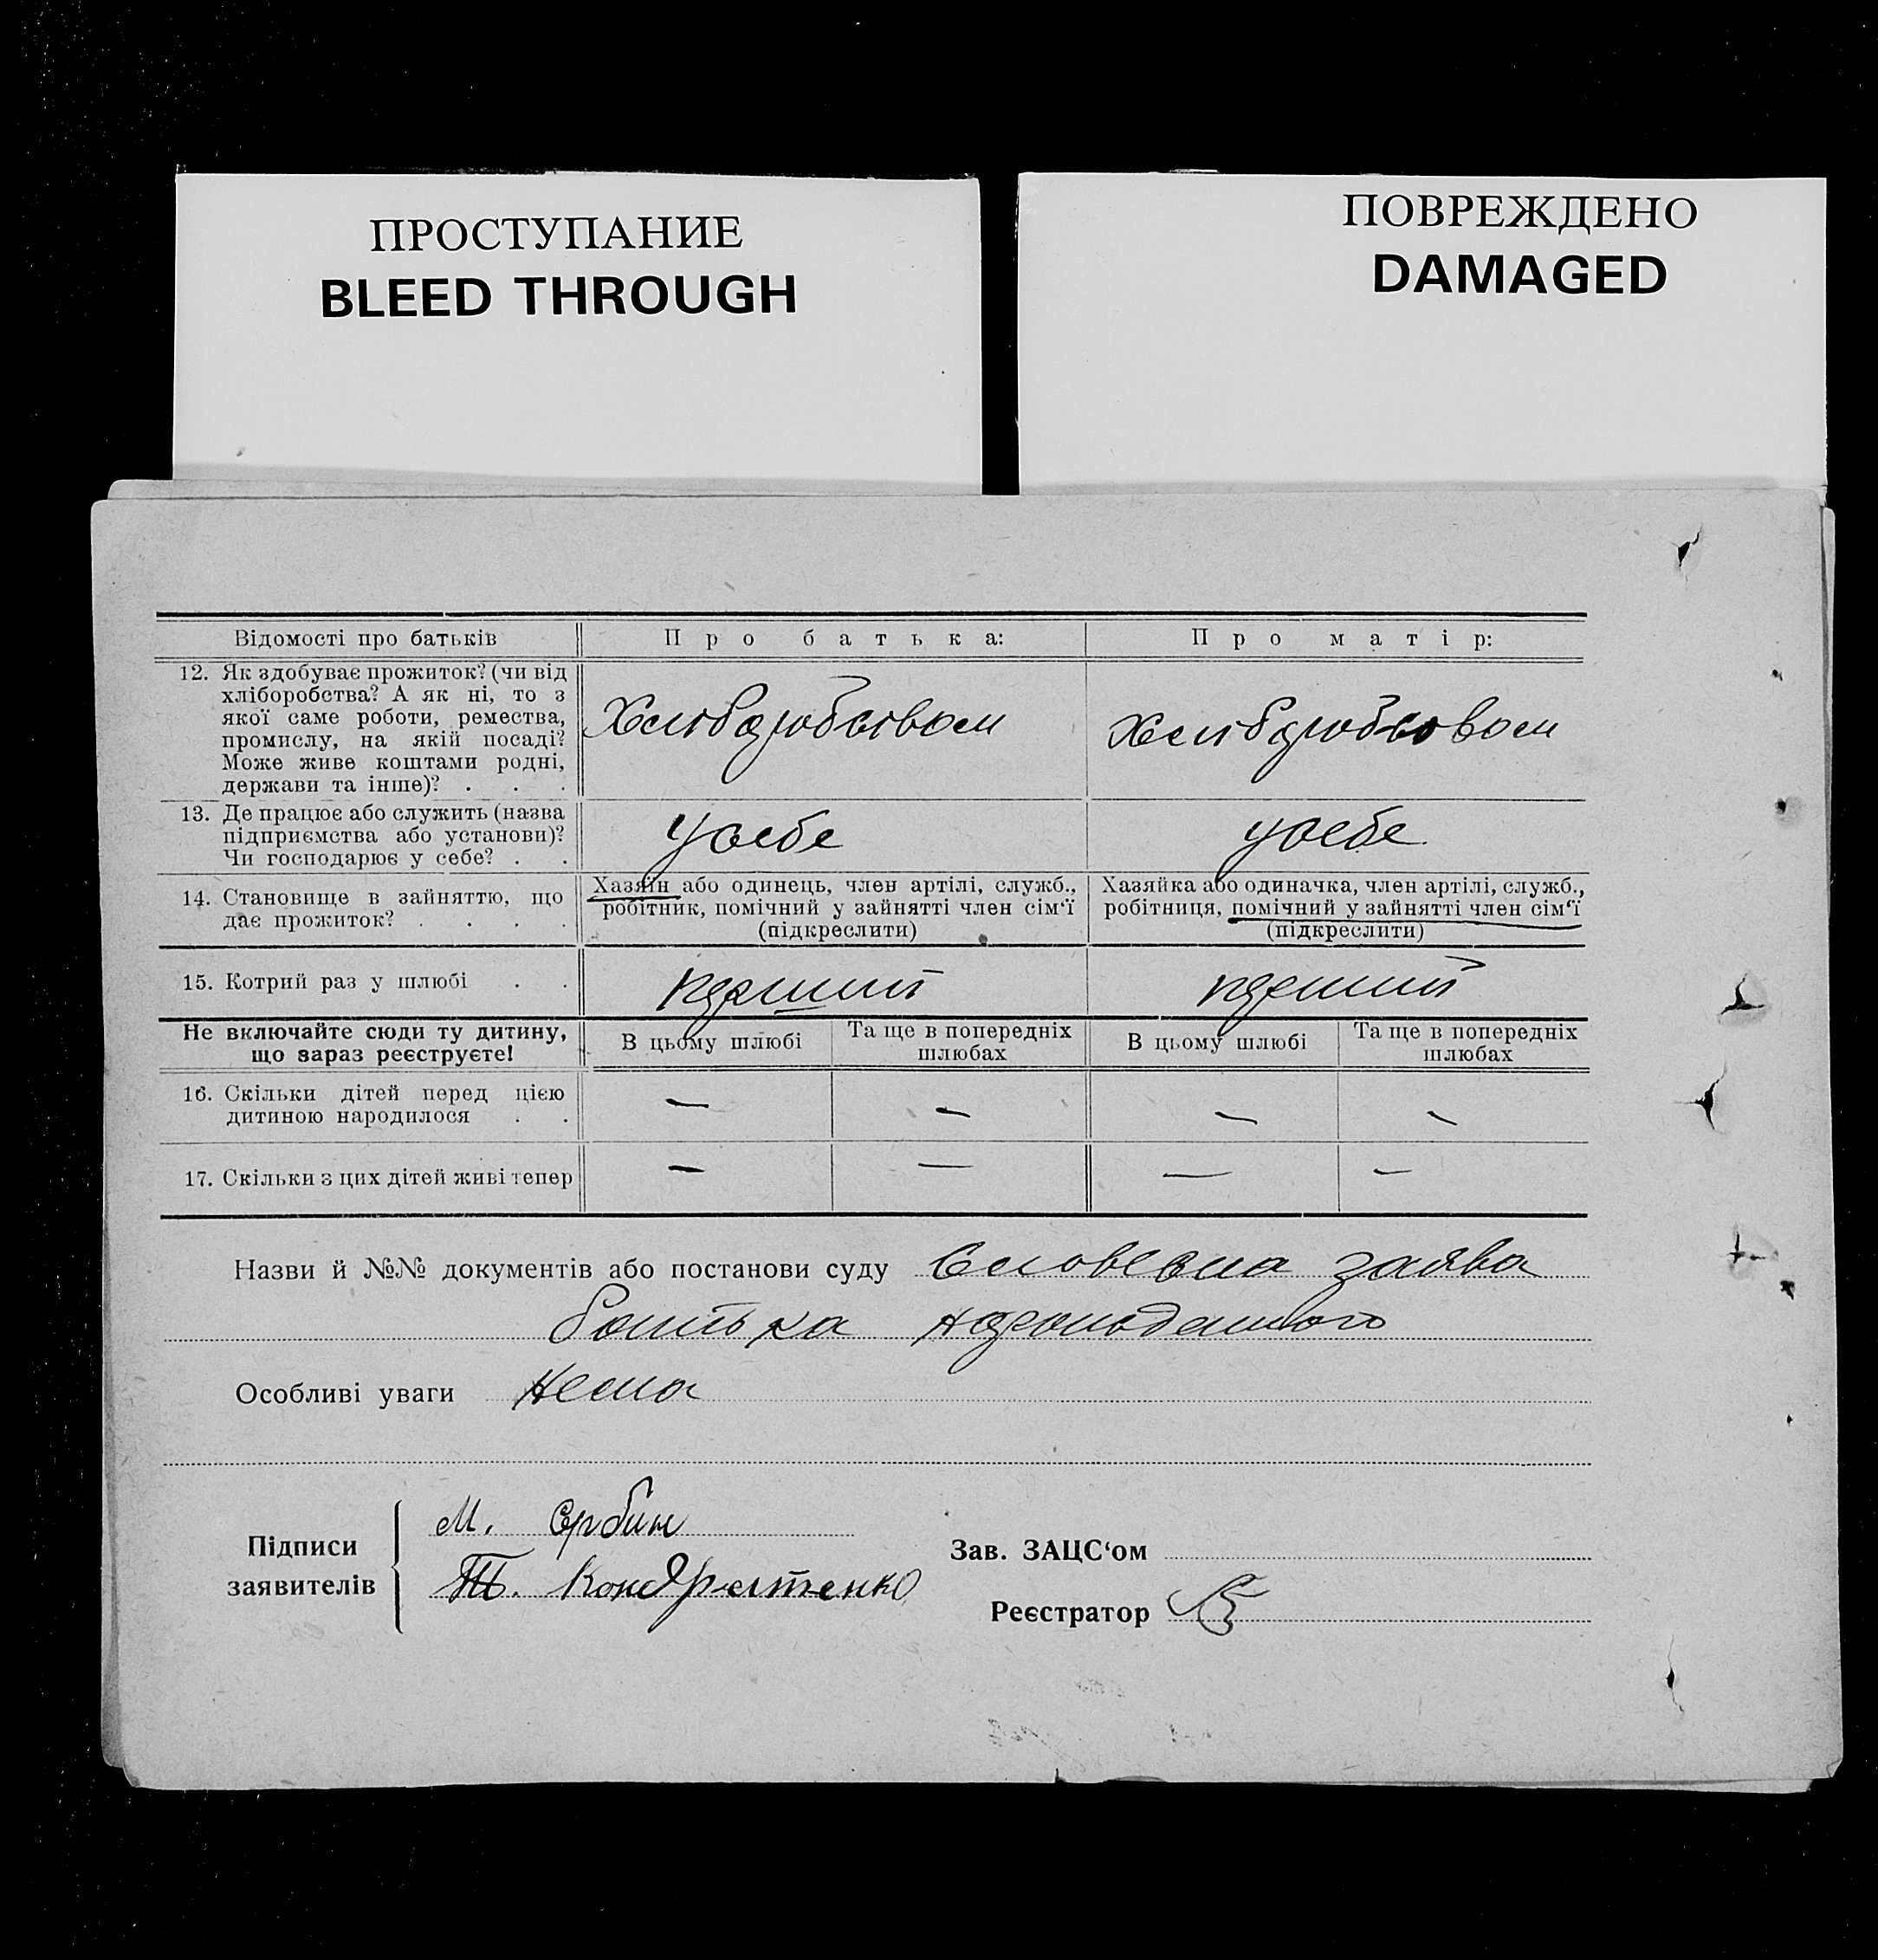 ПРОСТУПАНИЕ
BLEED THROUGH
ПОВРЕЖДЕНО
DAMAGED
Відомості про батьків
Про батька:
Про матір:
12. Як здобуває прожиток? (чи від
хліборобства? А як ні, то з
якої саме роботи, ремества,
промислу, на якій посаді?
Може живе коштами родні,
держави та інше)? . . .
Хлібаробством
Хлібаробсовом
13. Де працює або служить (назва
підприємства або установи)?
Чи господарює у себе? . .
У себе
у себе
14. Становище в зайняттю, що
дає прожиток? . . . .
Хазяїн або одинець, член артілі, служб.,
робітник, помічний у зайнятті член сім‘ї
(підкреслити)
Хазяйка або одиначка, член артілі, служб.,
робітниця, помічний у зайнятті член сім‘ї
(підкреслити)
15. Котрий раз у шлюбі . .
перший
перший
Не включайте сюди ту дитину,
що зараз реєструєте!
В цьому шлюбі
Та ще в попередніх
шлюбах
В цьому шлюбі
Та ще в попередніх
шлюбах
16. Скільки дітей перед цією
дитиною народилося . .
— — — —
17. Скільки з цих дітей живі тепер
— — — —
Назви й №№ документів або постанови суду Словесна заява
батька
Особливі уваги Нема
Підписи
заявителів
М. Србин
Т. Кондратенко
Зав. ЗАЦС‘ом
Реєстратор